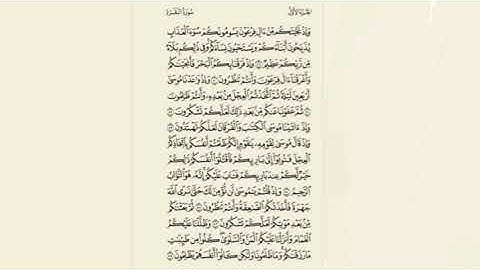 الجزء الأول سورة البقرة
وَإِذْ نَجَّيْنَٰكُم مِّنْ ءَالِ فِرْعَوْنَ يَسُومُونَكُمْ سُوٓءَ ٱلْعَذَابِ
يُذَبِّحُونَ أَبْنَآءَكُمْ وَيَسْتَحْيُونَ نِسَآءَكُمْ وَفِى ذَٰلِكُم بَلَآءٌ
مِّن رَّبِّكُمْ عَظِيمٌ ۝ وَإِذْ فَرَقْنَا بِكُمُ ٱلْبَحْرَ فَأَنجَيْنَٰكُمْ
وَأَغْرَقْنَآ ءَالَ فِرْعَوْنَ وَأَنتُمْ تَنظُرُونَ ۝ وَإِذْ وَٰعَدْنَا مُوسَىٰٓ
أَرْبَعِينَ لَيْلَةً ثُمَّ ٱتَّخَذْتُمُ ٱلْعِجْلَ مِنۢ بَعْدِهِۦ وَأَنتُمْ ظَٰلِمُونَ
۝ ثُمَّ عَفَوْنَا عَنكُم مِّنۢ بَعْدِ ذَٰلِكَ لَعَلَّكُمْ تَشْكُرُونَ ۝
وَإِذْ ءَاتَيْنَا مُوسَى ٱلْكِتَٰبَ وَٱلْفُرْقَانَ لَعَلَّكُمْ تَهْتَدُونَ ۝
وَإِذْ قَالَ مُوسَىٰ لِقَوْمِهِۦ يَٰقَوْمِ إِنَّكُمْ ظَلَمْتُمْ أَنفُسَكُم بِٱتِّخَاذِكُمُ
ٱلْعِجْلَ فَتُوبُوٓا۟ إِلَىٰ بَارِئِكُمْ فَٱقْتُلُوٓا۟ أَنفُسَكُمْ ذَٰلِكُمْ
خَيْرٌ لَّكُمْ عِندَ بَارِئِكُمْ فَتَابَ عَلَيْكُمْ إِنَّهُۥ هُوَ ٱلتَّوَّابُ
ٱلرَّحِيمُ ۝ وَإِذْ قُلْتُمْ يَٰمُوسَىٰ لَن نُّؤْمِنَ لَكَ حَتَّىٰ نَرَى ٱللَّهَ
جَهْرَةً فَأَخَذَتْكُمُ ٱلصَّٰعِقَةُ وَأَنتُمْ تَنظُرُونَ ۝ ثُمَّ بَعَثْنَٰكُم
مِّنۢ بَعْدِ مَوْتِكُمْ لَعَلَّكُمْ تَشْكُرُونَ ۝ وَظَلَّلْنَا عَلَيْكُمُ
ٱلْغَمَامَ وَأَنزَلْنَا عَلَيْكُمُ ٱلْمَنَّ وَٱلسَّلْوَىٰ كُلُوا۟ مِن طَيِّبَٰتِ
مَا رَزَقْنَٰكُمْ وَمَا ظَلَمُونَا وَلَٰكِن كَانُوٓا۟ أَنفُسَهُمْ يَظْلِمُونَ ۝